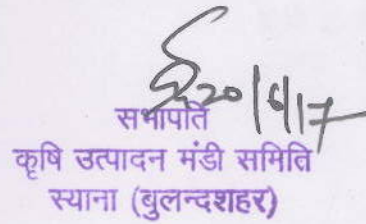 20/6/17
सभापति
कृषि उत्पादन मंडी समिति
स्याना (बुलन्दशहर)